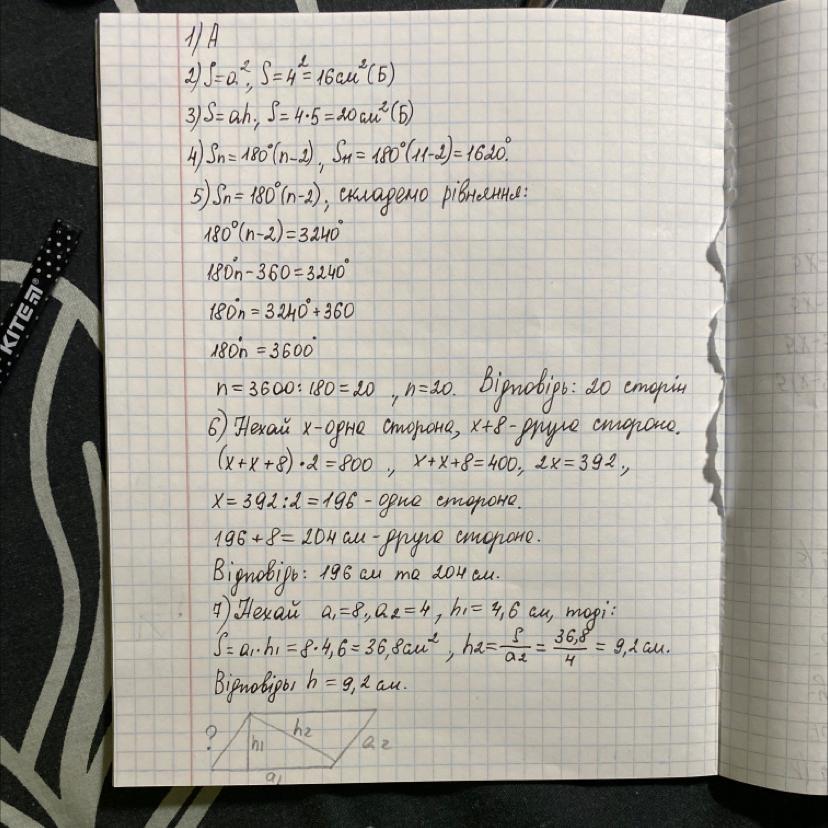 1) А
2) S=a², S=4²=16см²(Б)
3) S=ah., S=4·5=20см²(Б)
4) Sn=180°(n-2), S11=180°(11-2)=1620°.
5) Sn=180°(n-2), складемо рівняння:
180°(n-2)=3240°
180°n-360=3240°
180°n=3240°+360
180°n=3600°
n=3600:180=20, n=20. Відповідь: 20 сторін
6) Нехай x-одна сторона, x+8-друга сторона.
(x+x+8)·2=800, x+x+8=400, 2x=392,
x=392:2=196-одна сторона.
196+8=204см-друга сторона.
Відповідь: 196 см та 204 см.
7) Нехай a1=8, a2=4, h1=4,6 см, тоді:
S=a1·h1=8·4,6=36,8см², h2=S/a2=36,8/4=9,2см.
Відповідь: h=9,2 см.
? h1 h2 a2
a1
KITE